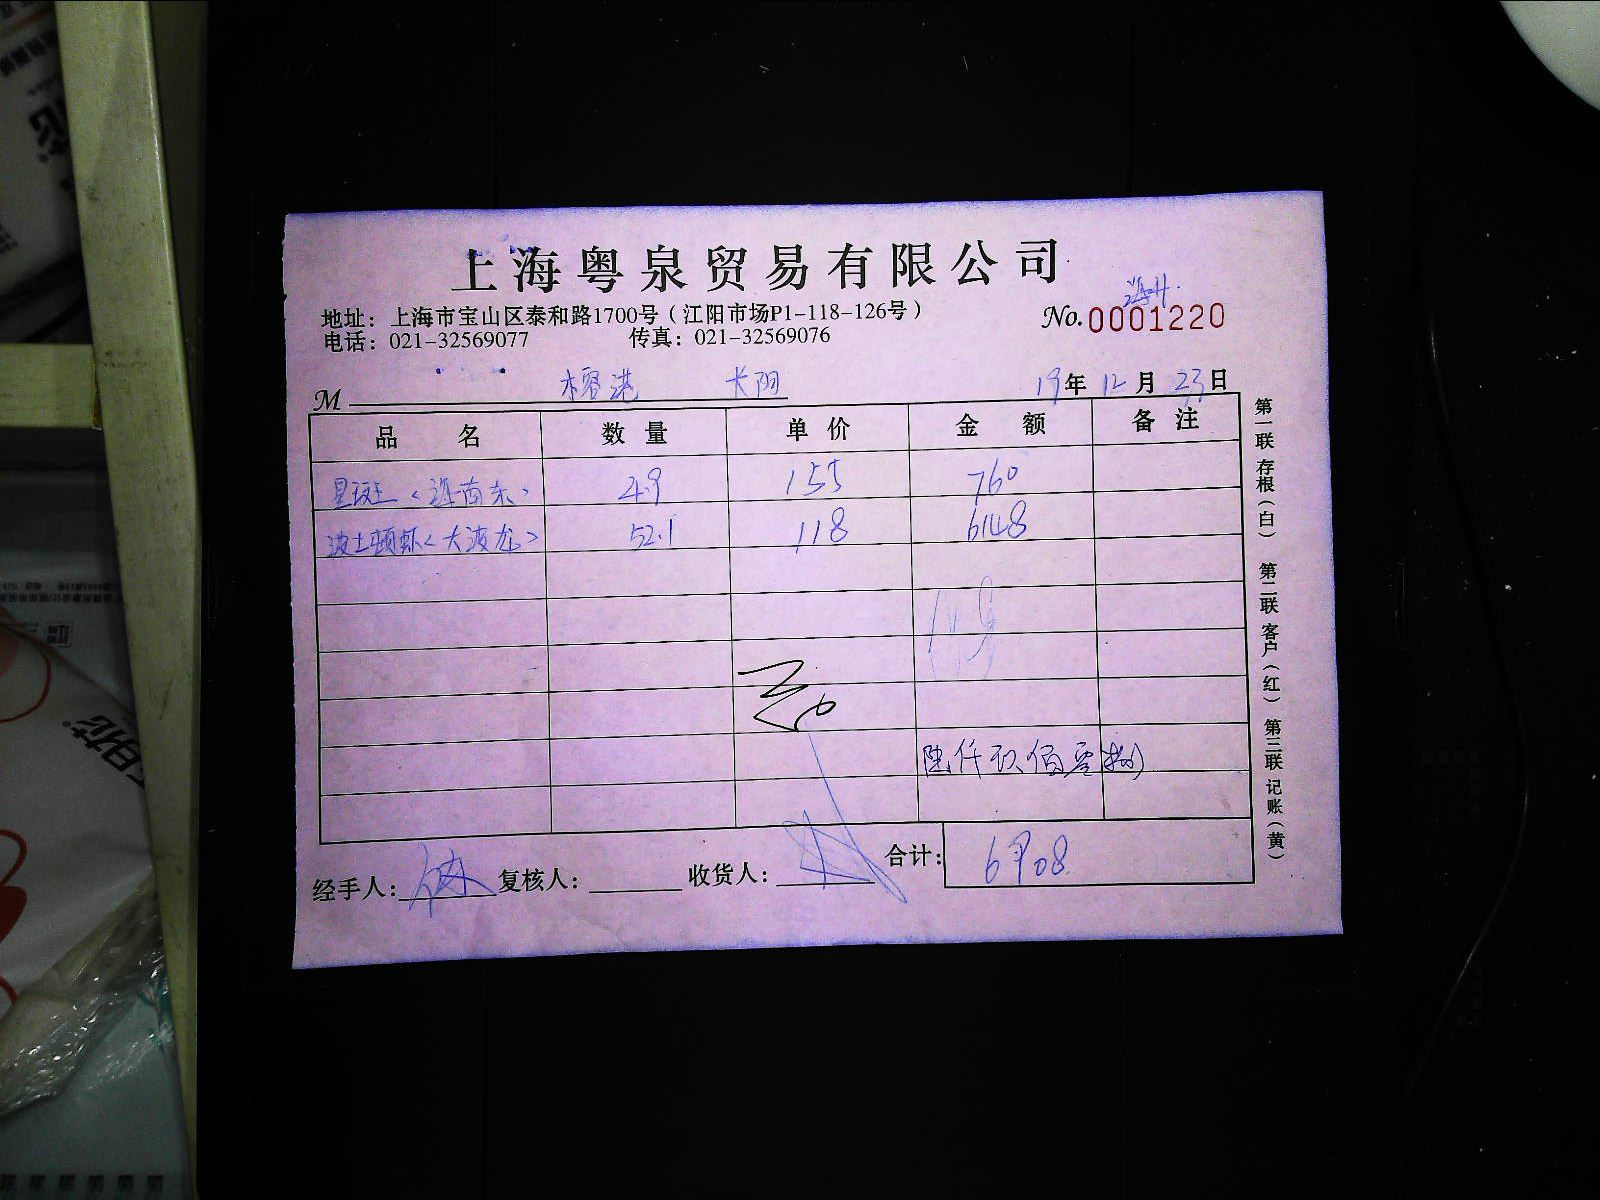 上海粤泉贸易有限公司
地址：上海市宝山区泰和路1700号（江阳市场P1-118-126号）
No.0001220
电话：021-32569077 传真：021-32569076
M 榕港 长阳 19年12月23日
品名 数量 单价 金额 备注
星斑（海南东） 4.9 155 760
波士顿虾（大波龙） 52.1 118 6148
陆仟玖佰零捌
合计：6908
经手人： 复核人： 收货人：
第一联 存根（白） 第二联 客户（红） 第三联 记账（黄）